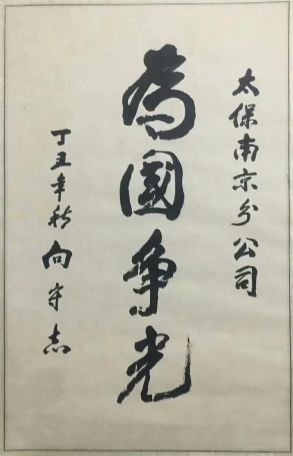 太保南京分公司
為國争光
丁丑年秋向守志